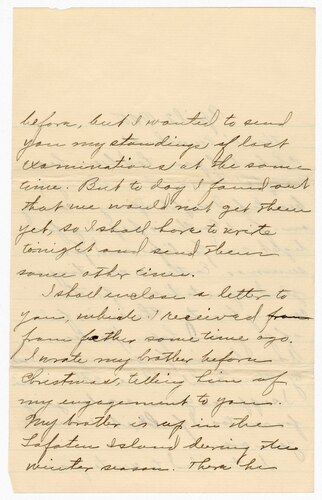 before, but I wanted to send
you my standings of last
examinations at the same
time. But to day I found out
that we would not get them
yet, so I shall have to write
tonight and send them
some other time.
I shall enclose a letter to
you, which I received from
from father some time ago.
I wrote my brother before
Christmas, telling him of
my engagement to you.
My brother is up in the
Lofoten Island during the
winter season. There he